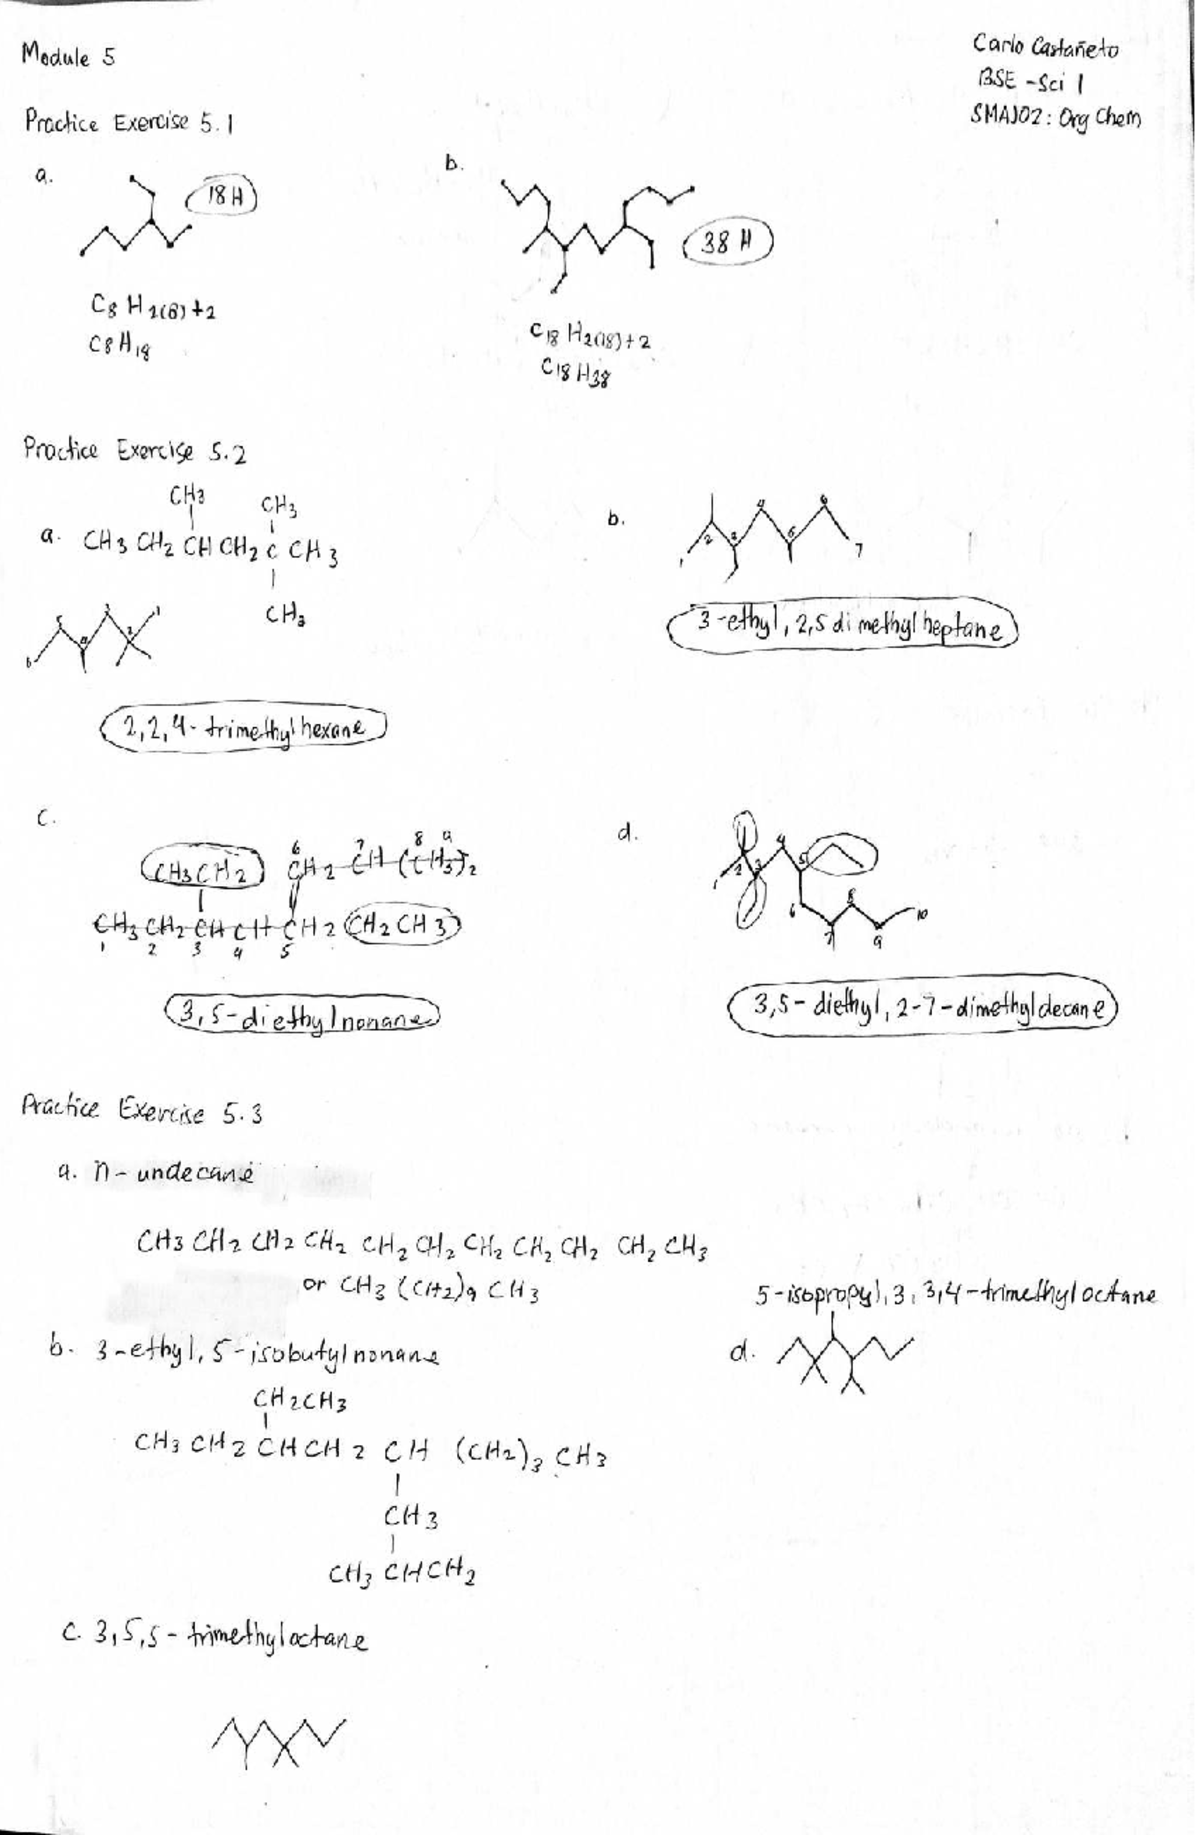 Module 5
Carlo Castañeto
BSE -Sci 1
SMAJ02: Org Chem
Practice Exercise 5.1
a.
18 H
C8 H2(8)+2
C8H18
b.
38 H
C18 H2(18)+2
C18 H38
Practice Exercise 5.2
CH3 CH3
a. CH3 CH2 CH CH2 C CH3
CH3
2,2,4-trimethylhexane
b.
1 2 3 4 5 6 7
3-ethyl, 2,5 dimethyl heptane
c.
6 7 8 9
CH3CH2 CH2 CH (CH3)2
CH3 CH2 CH CH CH2 CH2 CH3
1 2 3 4 5
3,5-diethylnonane
d.
1 2 3 4 5
6 7 8 9 10
3,5-diethyl, 2-7-dimethyldecane
Practice Exercise 5.3
a. n-undecane
CH3 CH2 CH2 CH2 CH2 CH2 CH2 CH2 CH2 CH2 CH3
or CH3 (CH2)9 CH3
b. 3-ethyl, 5-isobutylnonane
CH2CH3
CH3 CH2 CHCH2 CH (CH2)3 CH3
CH3
CH3 CHCH2
c. 3,5,5-trimethyloctane
5-isopropyl, 3,3,4-trimethyloctane
d.